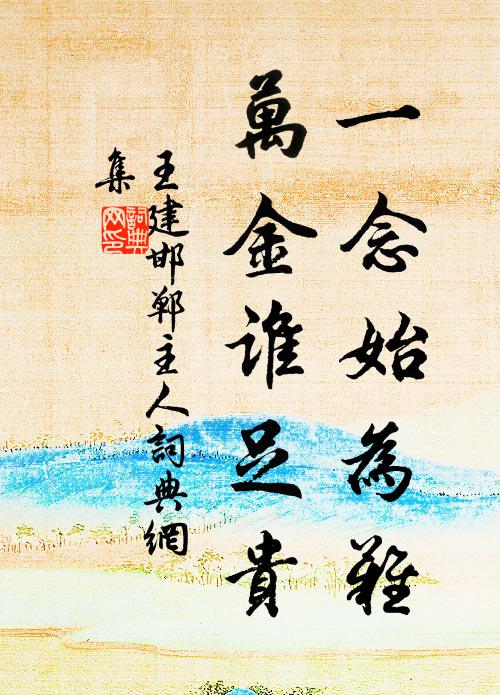 一念始為難
萬金誰足貴
王建邯鄲主人詞典網
集
詞典
网印